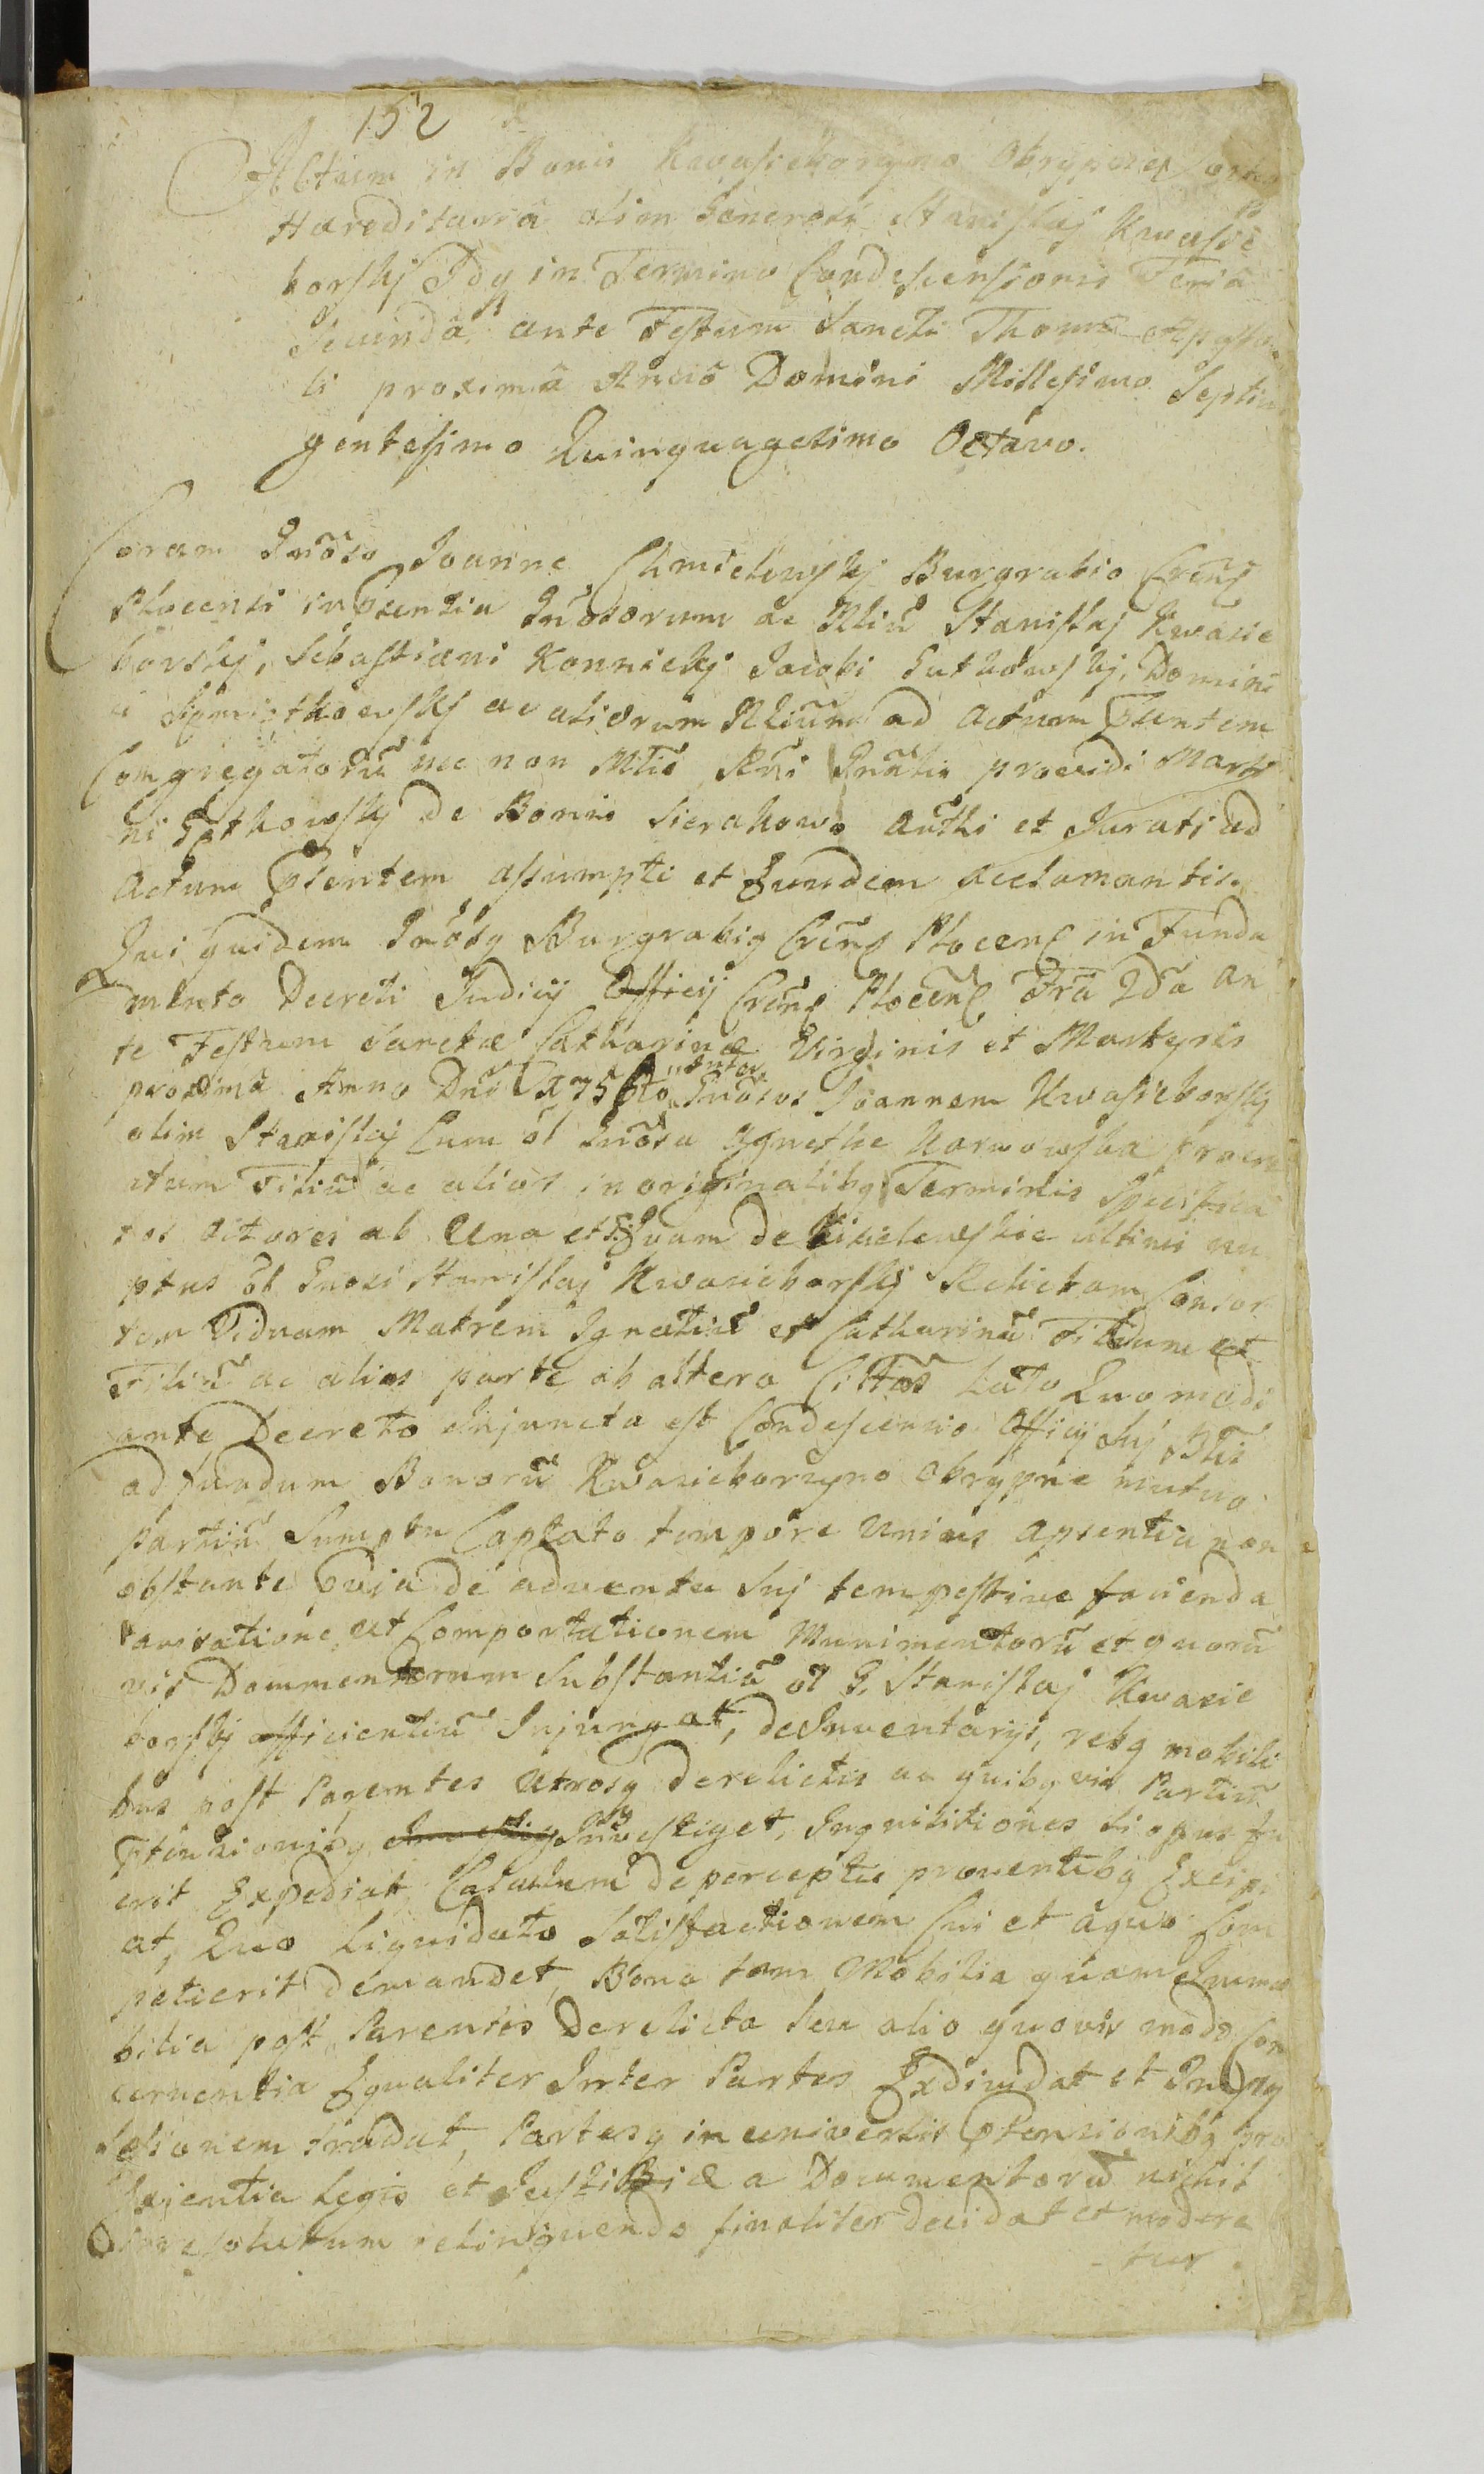 152
Actum in Bonis Kwasieborzyno Obrypne
Hæreditariâ olim Generosi Stanislaj Kwasie
borskj Idq in Termino Condescensionis Feriâ
Secundâ ante Festum Sancti Thomæ Aposto
li proximâ Anno Domini Millesimo Septin
gentesimo Quinquagesimo Octavo.
Coram Gnõso Joanne Chmielewskj Burgrabio Crenẽ
Plocensi in pntia Gnosorum ac Nliũ Stanislaj Kwasie
borskj, Sebastiani Konnickj Jacobi Gutkowskj, Domini
ci ac aliorum Nliũm ad Actum Psentem
Congregatorũ nec non Mtis Rni Gnãlis providi Marti
ni de Bonis Sierakowo authi et Jurati ad
Actum Psentem assumpti et Eundem acclamantis.
Qui quidem Gnõsq Burgrabiq Crenẽ Plocenẽ in Funda
mento Decreti Judicij Officij Crenẽ Plocenẽ Frã 2dã an
te Festum Sanctæ Catharinæ Virginis et Martyris
proximâ Anno Dni 1756to inter Gnõsos Joannem Kwasieborskj
olim Stanislaj Cum ol Gnõsa Agnethe Karwowska procre
atum Filiũ ac alios in originalibq Terminis Specifica
tos actores ab Una et Evam de Kisielewskie ultimi nu
ptus ol Gnosi Stanislaj Kwasieborskj Relictam Consor
tem Viduam Matrem Ignatiũ et Catharinã Filium et
Filiã ac alios parte ab altera Cittos Lato Quo medi
ante Decreto Injuncta est Condescensio Officij Suj
ad fundum Bonorũ Kwasieborzyno Obrypne mutuo
partiũ Sumptu Captato tempore Unius apsentia non
obstante pvia de adventu Suj tempestive facienda
ratione ut Comportationem Munimentorũ et quorũ
vis Dommentorum Substantiã ol G. Stanislaj Kwasie
borskj afficientiũ Injungat, de Inventarijs, rebq mobili
bus post Parentes Utrosq derelictis ac quibq vis Partiũ
Ptensionibq Investiget, Inquisitiones si opus fu
erit Expediat, Calculum de perceptis proventibq Excipi
at, Quo Liquidato Satisfactionem Cui et aquo Com
petierit demandet, Bona tam Mobilia quam Immo
bilia post Parentes Derelicta Seu alio quovis modo Con
cernentia Equaliter Inter Partes Exdividat et In
sessionem tradat, Partesq in universis Ptensionibq pro
Exientia Legis et Justitiæ a Documentorũ nichil
irresolutum relinquendo finaliter decidat et modere
tur